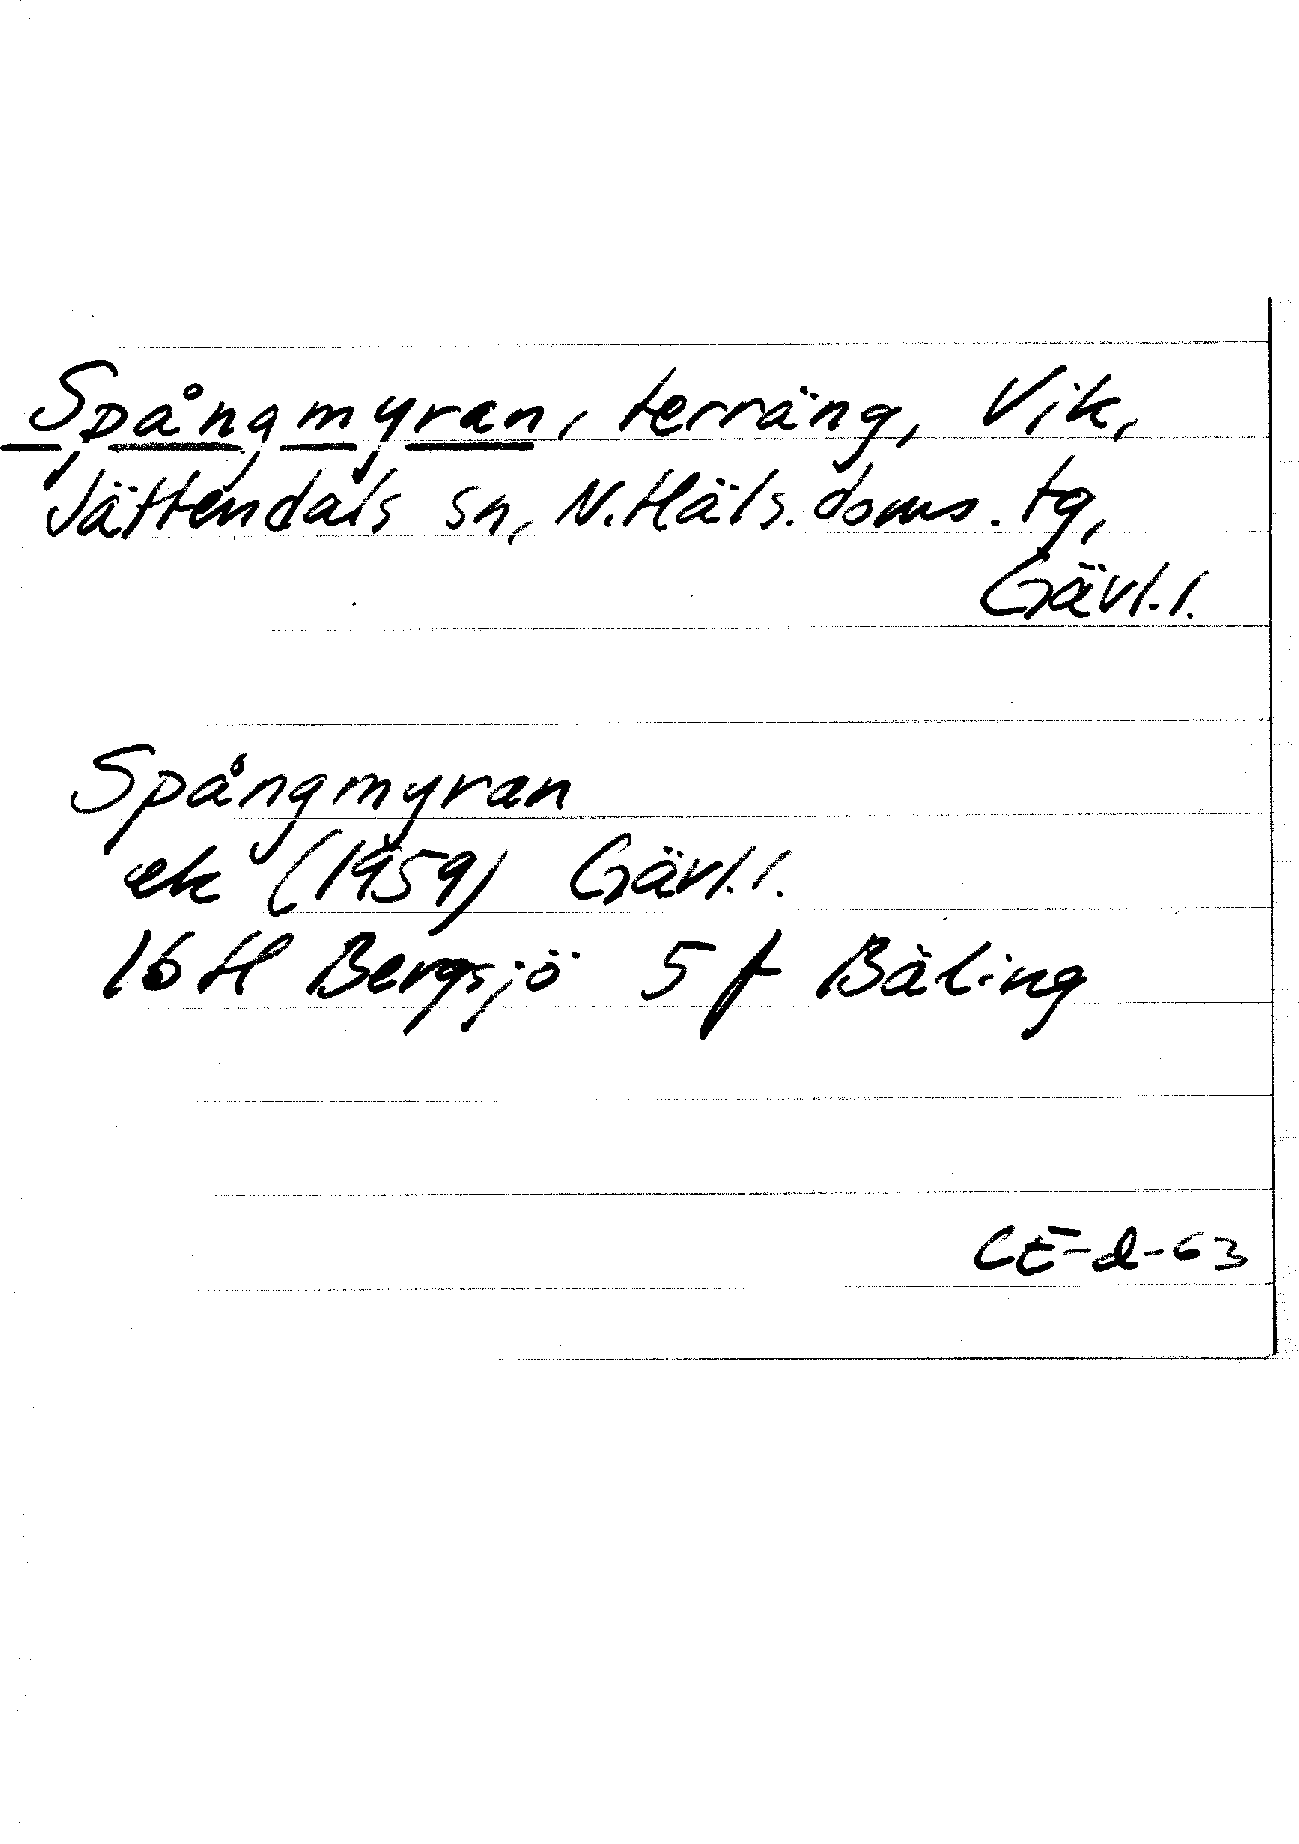 Spångmyran, terräng, Vik,
Jättendals sn, N.Häls. doms. tg,
Gävl.l.
Spångmyran
ek (1959) Gävl.l.
16 H Bergsjö 5 f Bäling
CE-d-63